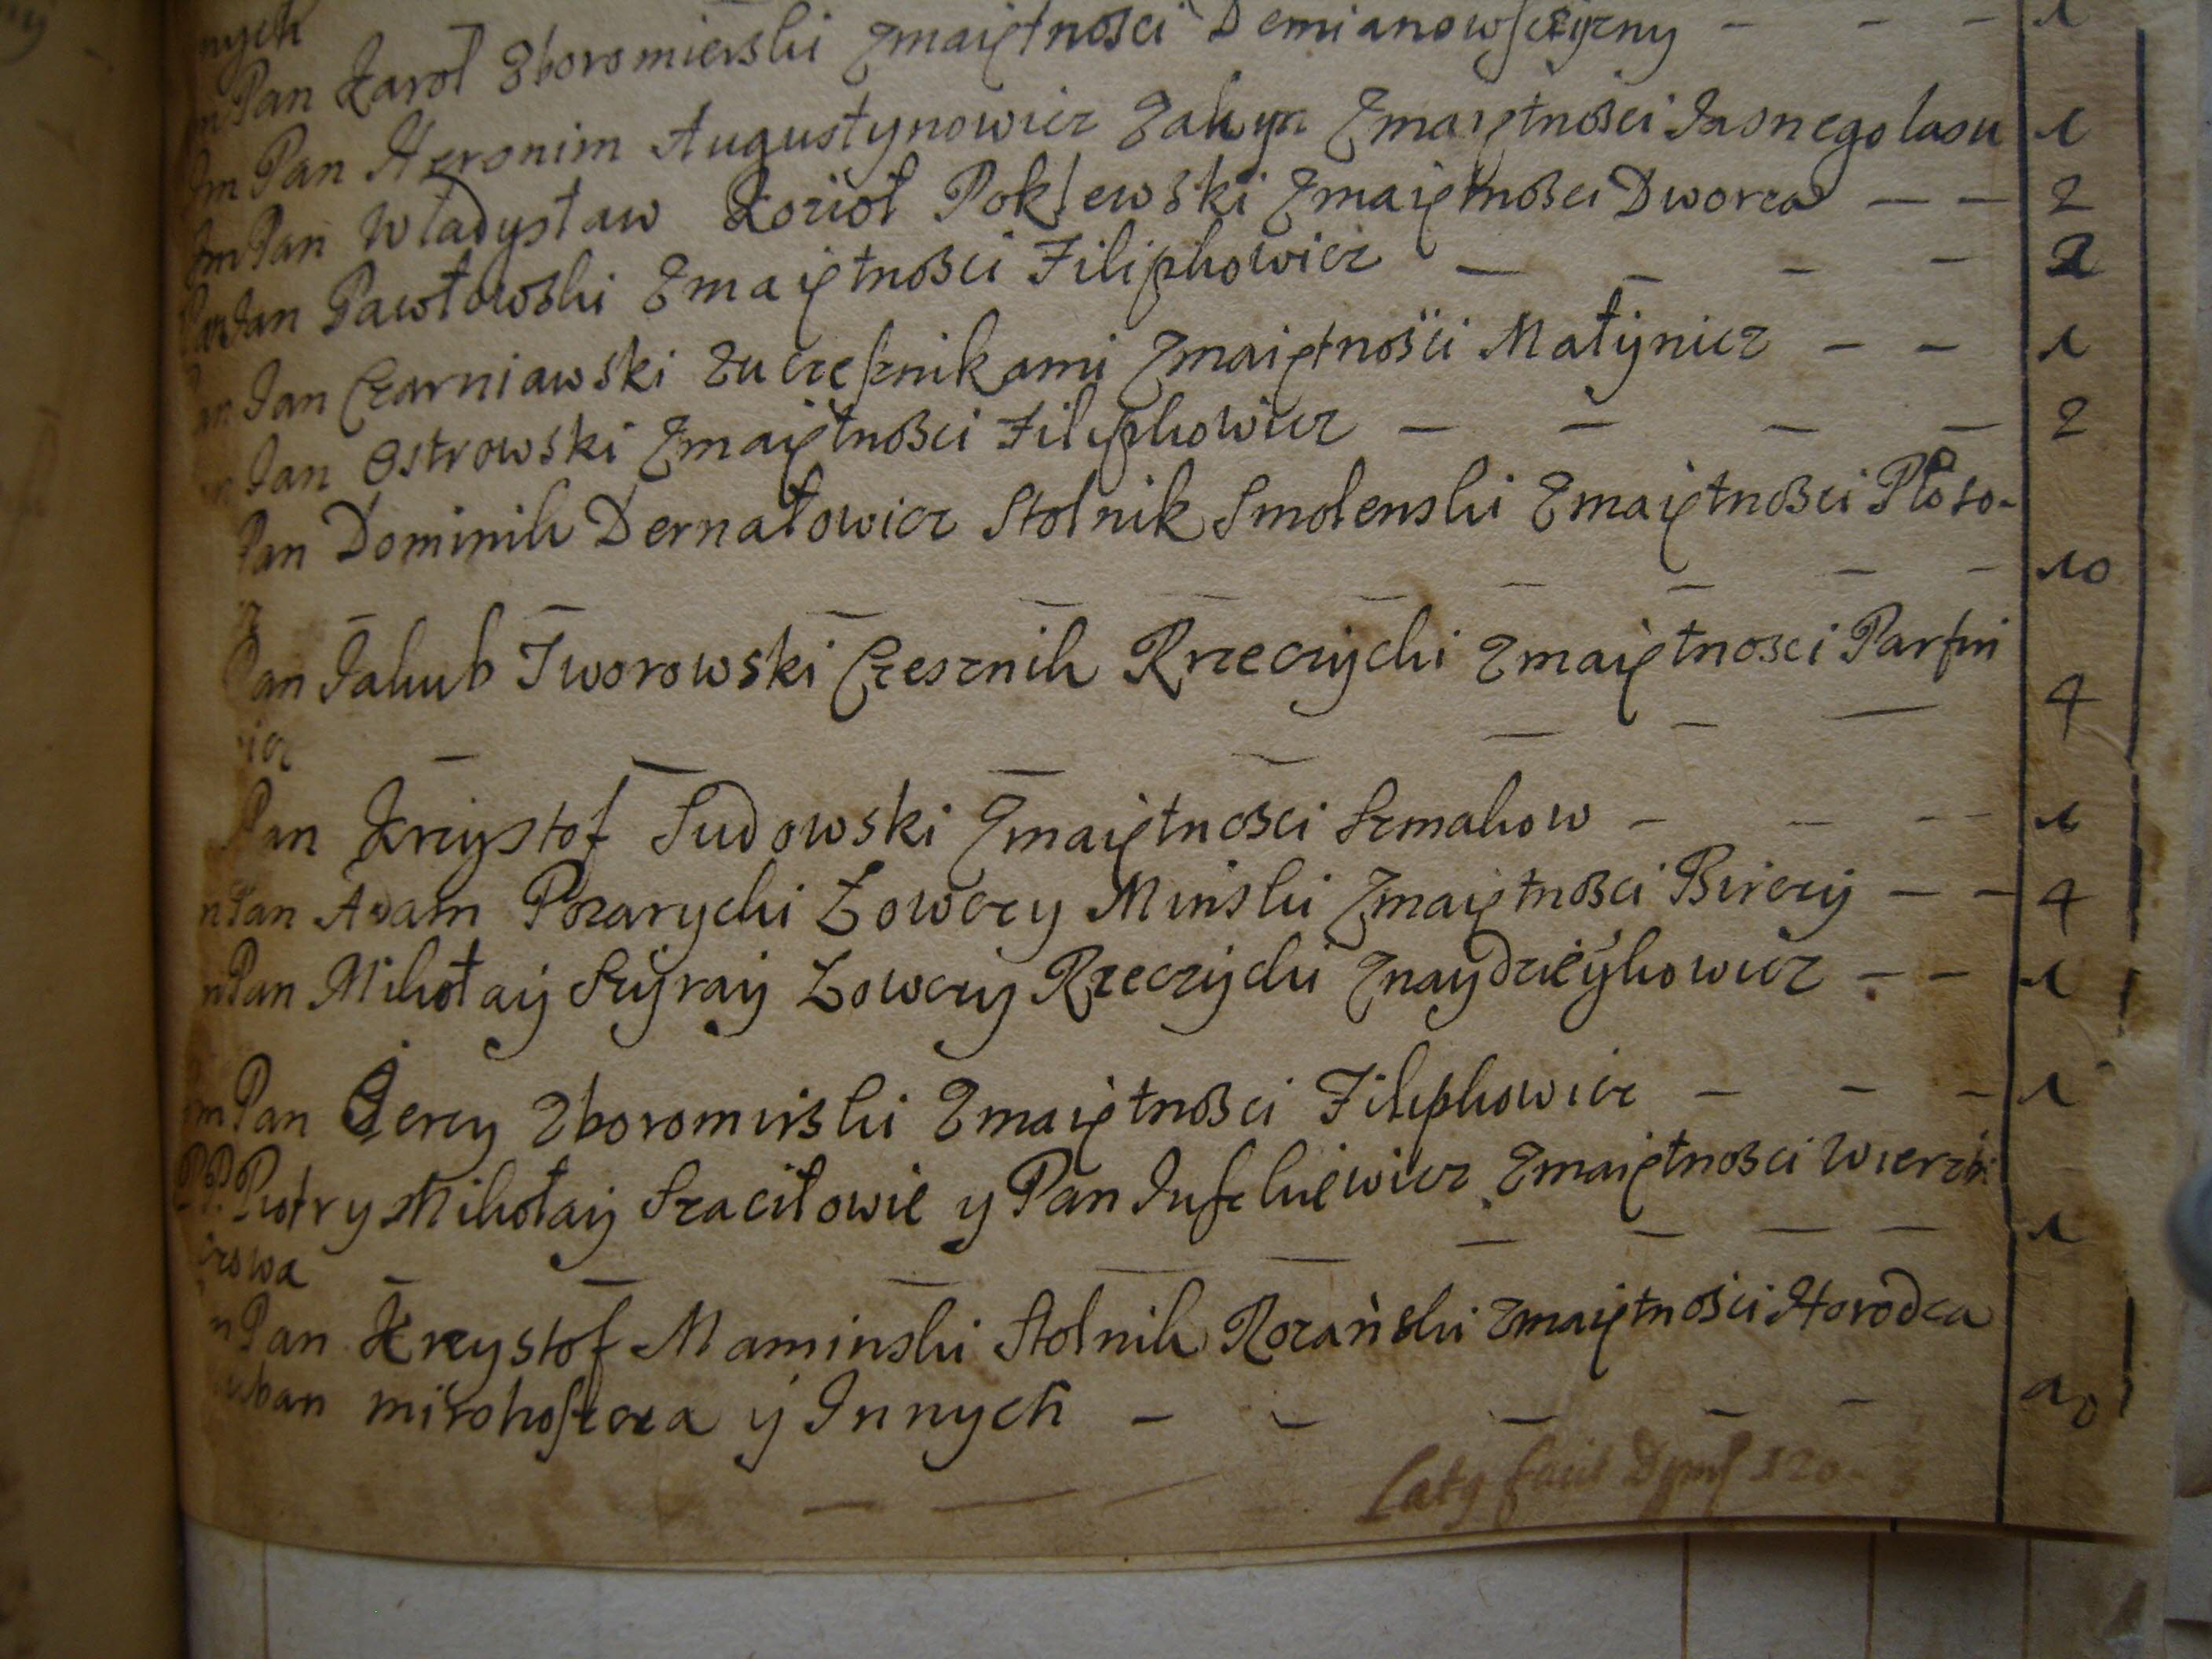 nych
Pan Karol Zboromierski Zmaiętnosci Demianowsczyzny - - - 1
Jm Pan Heronim Augustynowicz Zmaiętności Jasnego lasu 1
Jm Pan Władysław Kozioł Poklewski Zmaiętności Dworca - - 2
Pan Jan Pawłowski Zmaiętności Filipkowicz - - - - 2
Jan Czarniawski zuczesznikami Zmaiętnosci Małynicz - - 1
Jan Ostrowski Zmaiętności Filipkowicz - - - - 2
Pan Dominik Dernałowicz Stolnik Smolenski Zmaiętności
- - - - - - - - - 10
Pan Jakub Tworowski Czesznik Rzeczycki Zmaiętnosci Parfin
icz - - - - - - - 4
Pan Krzystof Sudowski Zmaiętności Szmakow - - - - 1
Pan Adam Pozarycki Łowczy Minski Zmaiętności Birczy - - 4
Pan Mikołay Szyray Łowczy Rzeczycki Znaydzieykowicz - - 1
Jm Pan Jerzy Zboromirski Zmaiętności Filipkowicz - - - 1
PP. Piotr y Mikołay Szaciłowie y Pan Juszkiewicz Zmaiętności Wierzbi
czowa - - - - - - - - 1
Pan Krzystof Maminski Stolnik Rozański Zmaiętności Horodca
mirohoszcza y Innych - - - - - 10
Laty facit Dym 120